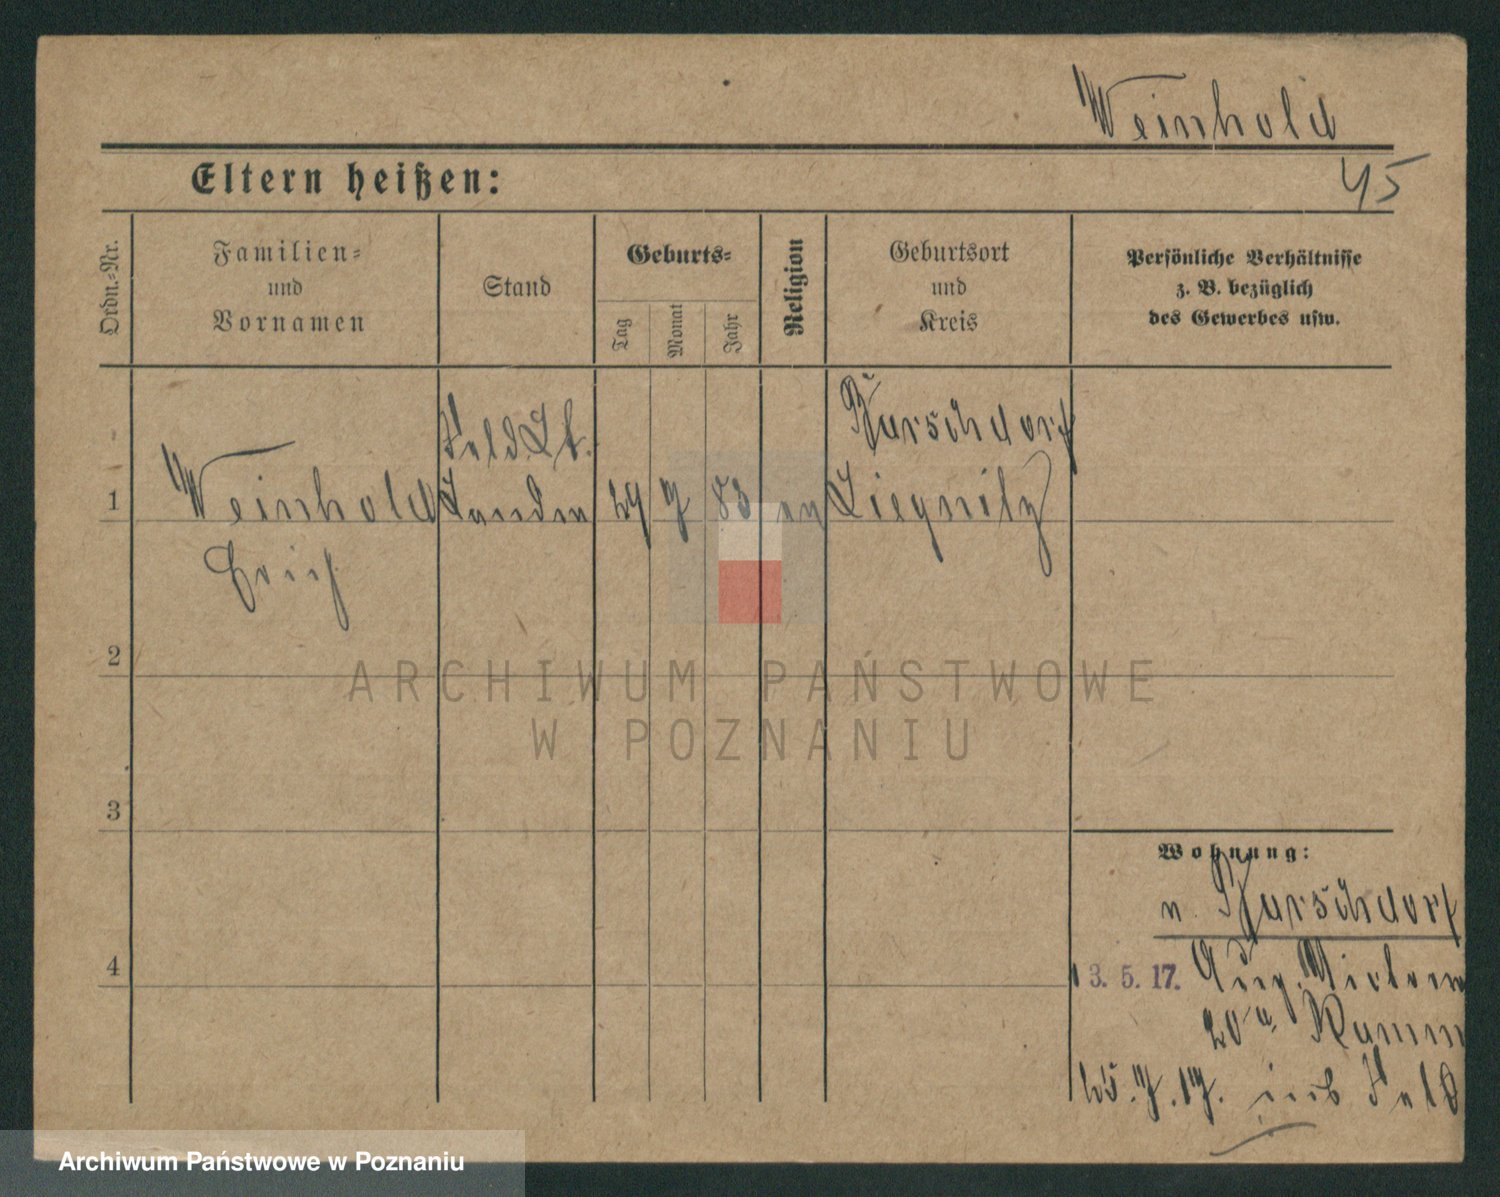 Weinhold
45
Eltern heißen:
Ordn.-Nr.
Familien-
und
Vornamen
Stand
Geburts-
Tag
Monat
Jahr
Religion
Geburtsort
und
Kreis
Persönliche Verhältnisse
z. B. bezüglich
des Gewerbes usw.
1
Weinhold
Erich
29 7 83
Liegnitz
2
3
4
Wohnung:
n.
13. 5. 17. Aug.
20a
25. 7. 17. ins Feld
ARCHIWUM PAŃSTWOWE
W POZNANIU
Archiwum Państwowe w Poznaniu